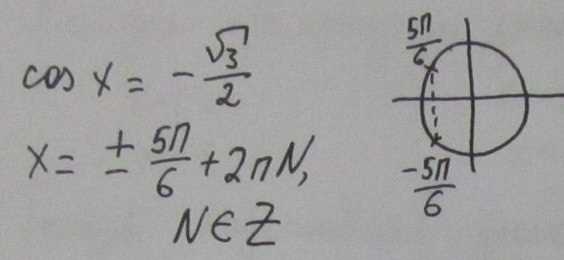 cos x = -√3/2
x = ± 5π/6 + 2πN,
N ∈ Z
5π/6
-5π/6